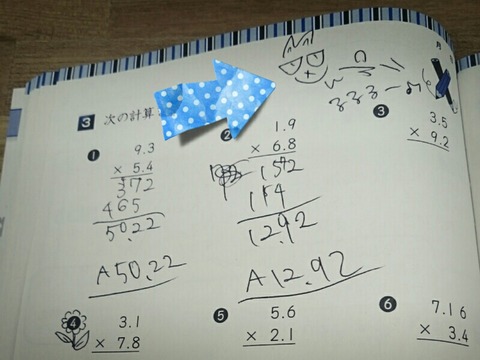 3 次の計算
❶
9.3
× 5.4
372
465
50.22
A50.22
❷
1.9
× 6.8
152
114
12.92
A12.92
❸
3.5
× 9.2
❹
3.1
× 7.8
❺
5.6
× 2.1
❻
7.16
× 3.4